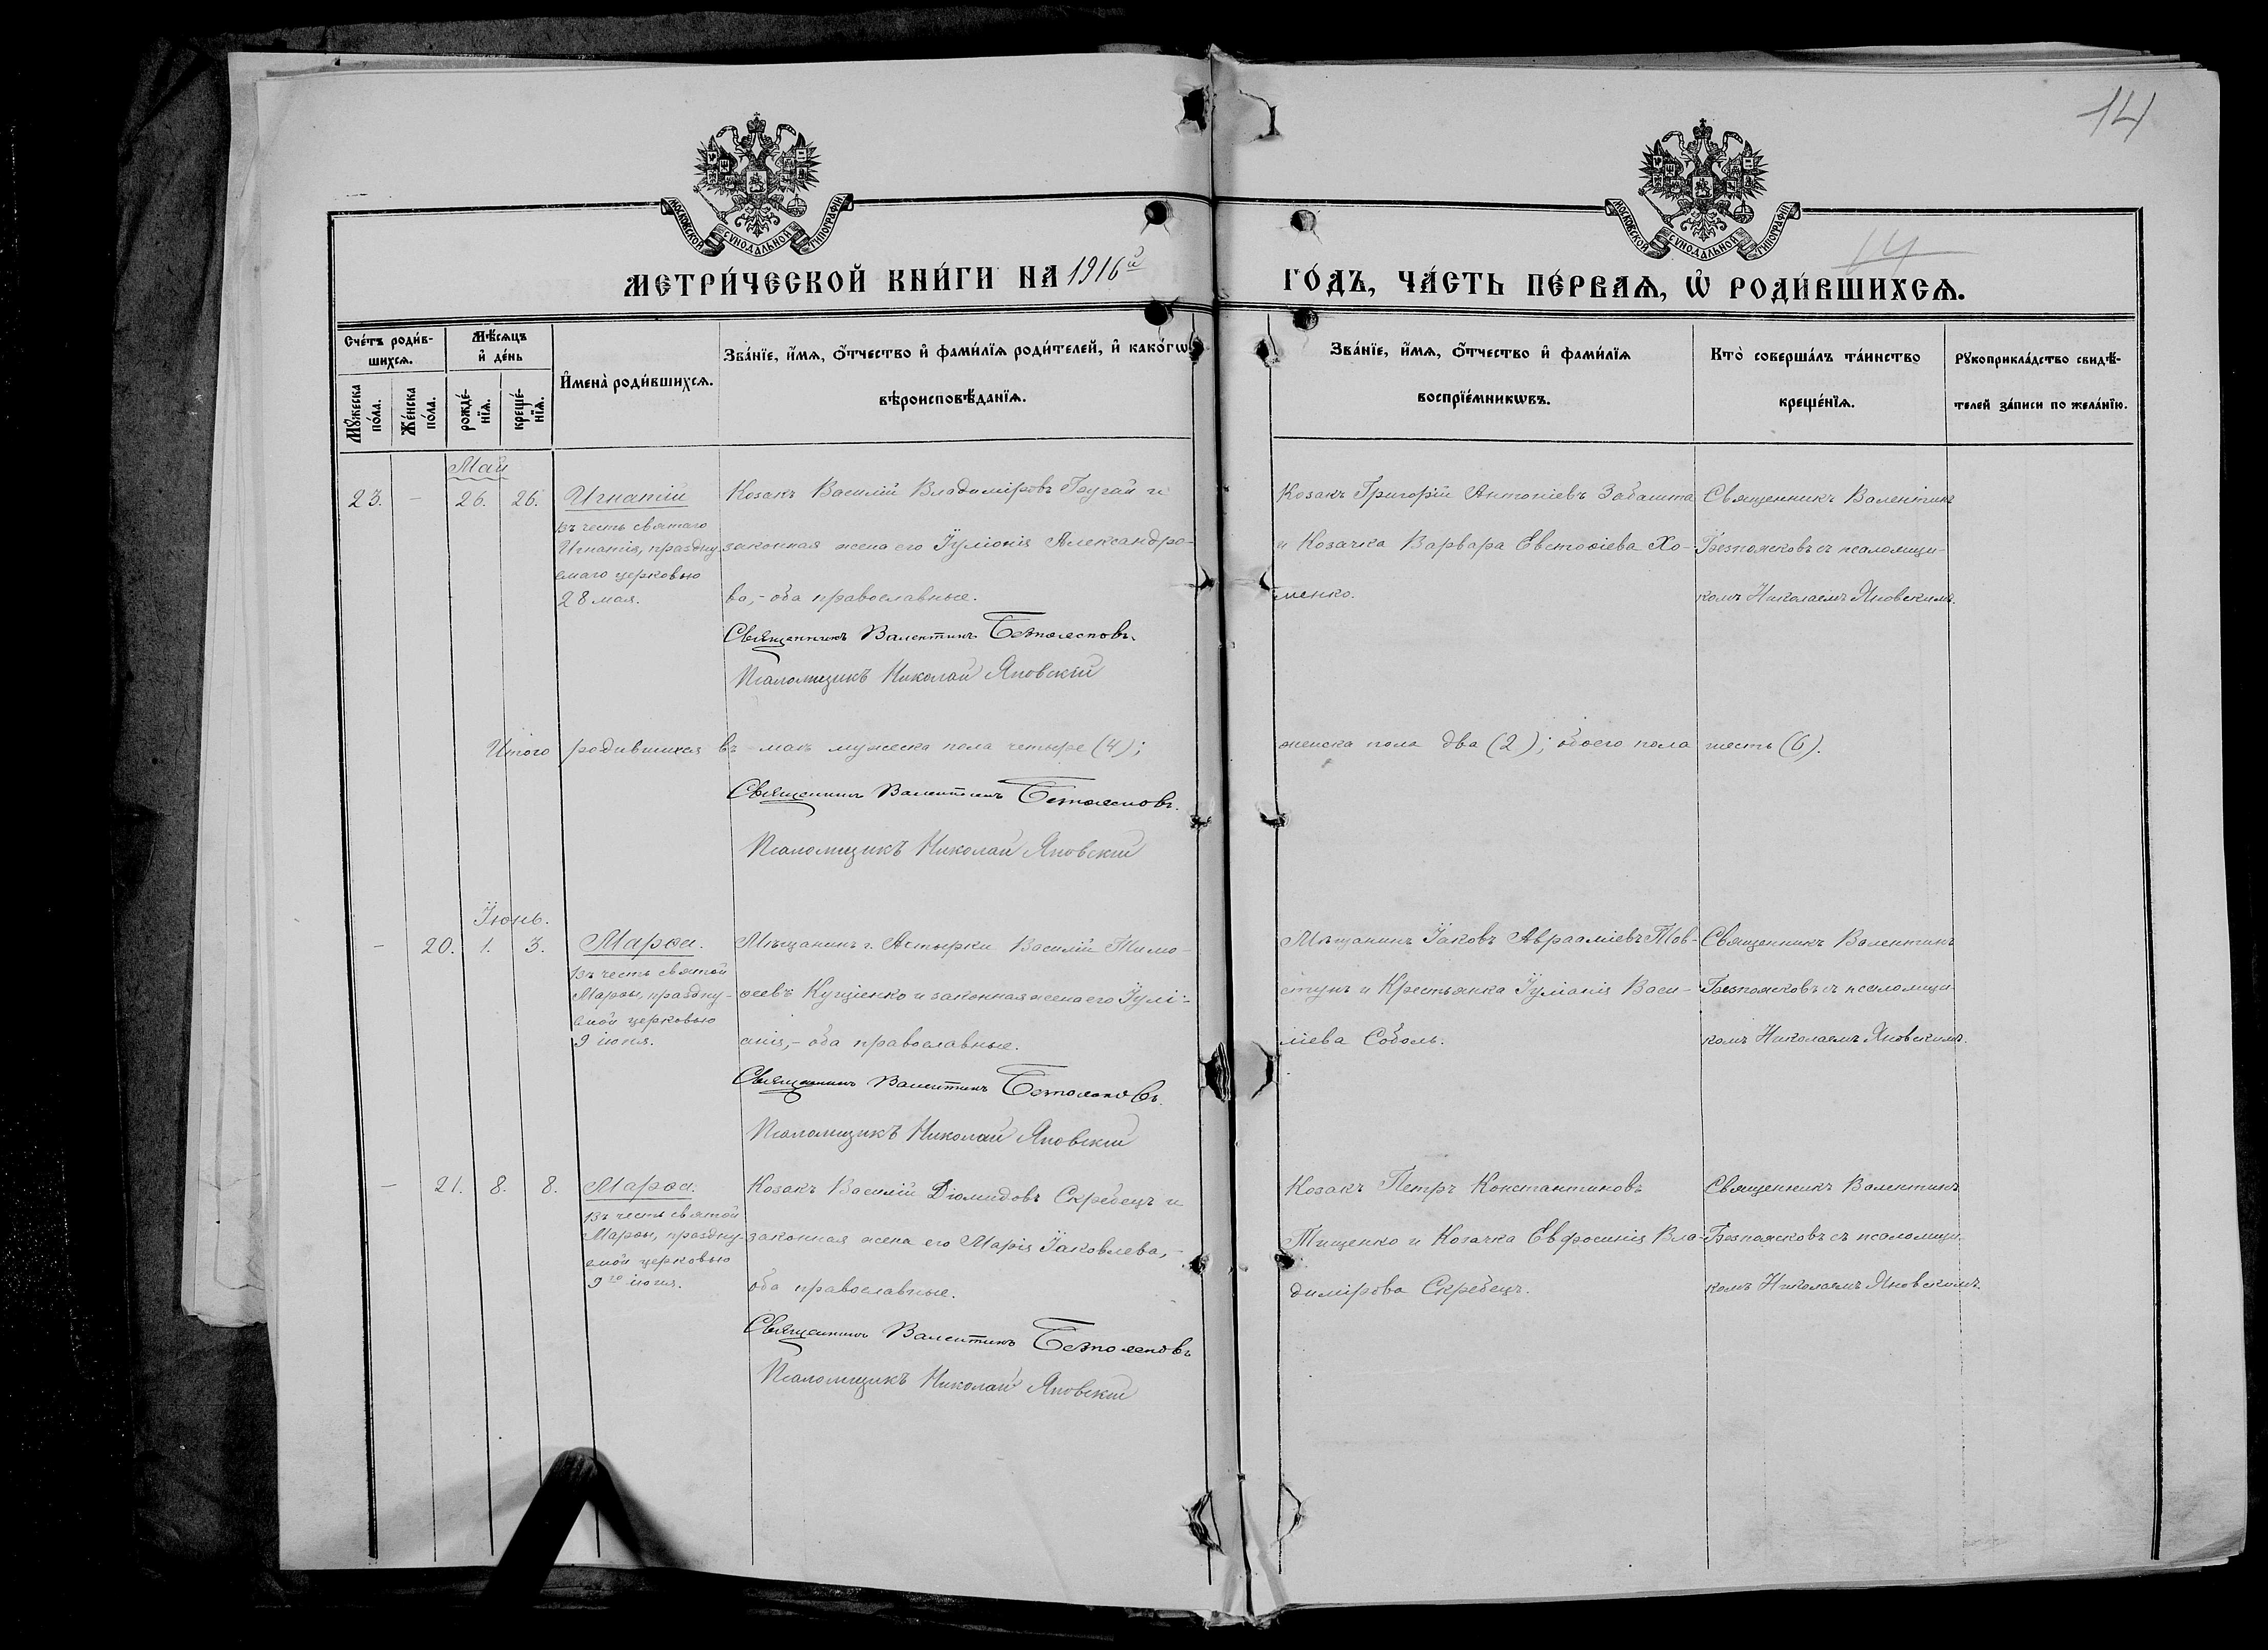 14
МОСКОВСКОЙ СУНОДАЛЬНОЙ ТИПОГРАФІИ
МОСКОВСКОЙ СУНОДАЛЬНОЙ ТИПОГРАФІИ
14
МЕТРИ́ЧЕСКОЙ КНИ́ГИ НА 1916й ГО́ДЪ, ЧА́СТЬ ПЕ́РВАѦ, Ѡ҆ РОДИ́ВШИХСѦ.
Сче́тъ роди́в-
шихсѧ.
Мꙋ́жеска по́ла.
Же́нска по́ла.
Мѣ́сѧцъ и҆ де́нь
рожде́-
нїѧ.
креще́-
нїѧ.
И҆мена̀ роди́вшихсѧ.
Зва́нїе, и҆́мѧ, ѻ҆́тчество и҆ фами́лїѧ роди́телей, и҆ како́гѡ
вѣроисповѣ́данїѧ.
Зва́нїе, и҆́мѧ, ѻ҆́тчество и҆ фами́лїѧ
воспрїе́мникѡвъ.
Кто̀ соверша́лъ та́инство
креще́нїѧ.
Рꙋкоприкла́дство свидѣ́-
телей за́писи по жела́нїю.
Май
23. - 26. 26. Игнатій
въ честь святаго
Игнатія, праздну-
емаго церковью
28 мая.
Козакъ Василій Владиміровъ Гугай и
законная жена его Іуліанія Александро-
ва,- оба православные.
Священникъ Валентинъ Безпоясковъ.
Псаломщикъ Николай Яновскій
Козакъ Григорій Антоніевъ Забашта
и Козачка Варвара Евстафіева Хо-
менко.
Священникъ Валентинъ
Безпоясковъ съ псаломщи-
комъ Николаемъ Яновскимъ.
Итого родившихся въ маѣ мужеска пола четыре (4); женска пола два (2); обоего пола шесть (6).
Священникъ Валентинъ Безпоясковъ.
Псаломщикъ Николай Яновскій
Іюнь.
- 20. 1. 3. Марѳа.
въ честь святой
Марѳы, праздну-
емой церковью
9 іюня.
Мѣщанинъ г. Ахтырки Василій Тимо-
ѳеевъ Куціенко и законная жена его Іулі-
анія,- оба православные.
Священникъ Валентинъ Безпоясковъ.
Псаломщикъ Николай Яновскій
Мѣщанинъ Іаковъ Аврааміевъ Тов-
стунъ и Крестьянка Іуліанія Васи-
ліева Соболь.
Священникъ Валентинъ
Безпоясковъ съ псаломщи-
комъ Николаемъ Яновскимъ.
- 21. 8. 8. Марѳа.
въ честь святой
Марѳы, праздну-
емой церковью
9го іюня.
Козакъ Василій Діомидовъ Скребецъ и
законная жена его Марія Іаковлева,-
оба православные.
Священникъ Валентинъ Безпоясковъ
Псаломщикъ Николай Яновскій
Козакъ Петръ Константиновъ
Тищенко и Козачка Евфросинія Вла-
димірова Скребецъ.
Священникъ Валентинъ
Безпоясковъ съ псаломщи-
комъ Николаемъ Яновскимъ.